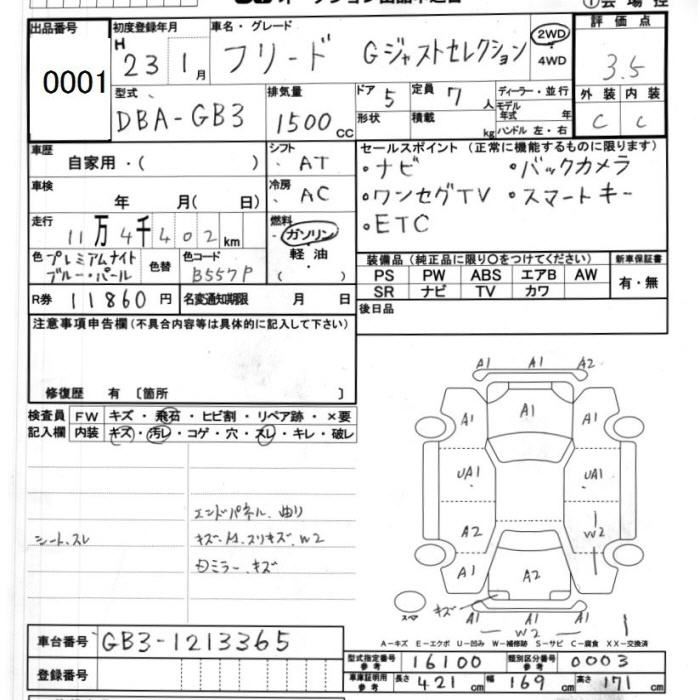 出品番号 初度登録年月 車名・グレード 2WD 評価点
0001 H 23 1月 フリード Gジャストセレクション 4WD 3.5
型式 排気量 ドア 定員 ディーラー・並行 外装 内装
DBA-GB3 1500cc 5 7人 モデル年式 年 C C
形状 積載 kg ハンドル 左・右
車歴 シフト セールスポイント (正常に機能するものに限ります)
自家用・( ) AT ・ナビ ・バックカメラ
車検 冷房 ・ワンセグTV ・スマートキー
年 月( 日) AC ・ETC
走行 燃料
11万4千402km ガソリン
軽油
( )
色 プレミアムナイトブルー・パール 色替 色コード B557P
装備品 (純正品に限り○をつけてください) 新車保証書
PS PW ABS エアB AW 有・無
SR ナビ TV カワ
R券 11860円 名変通知期限 月 日 後日品
注意事項申告欄 (不具合内容等は具体的に記入して下さい)
修復歴 有 〔箇所 〕
検査員 FW キズ・飛石・ヒビ割・リペア跡・×要
記入欄 内装 キズ・汚レ・コゲ・穴・スレ・キレ・破レ
エンドパネル.曲り
シート.スレ キズ.A1.スリキズ.W2
ミラー.キズ
A1 A1 A2
A1 A1 A1
UA1 UA1
A2 W2
A1 A2 A1
スペア キズ
A1 A1
W2
A-キズ E-エクボ U-凹み W-補修跡 S-サビ C-腐食 XX-交換済
車台番号 GB3-1213365
型式指定番号 参考 16100 類別区分番号 参考 0003
登録番号 車庫証明用 参考 長さ 421cm 幅 169cm 高さ 171cm